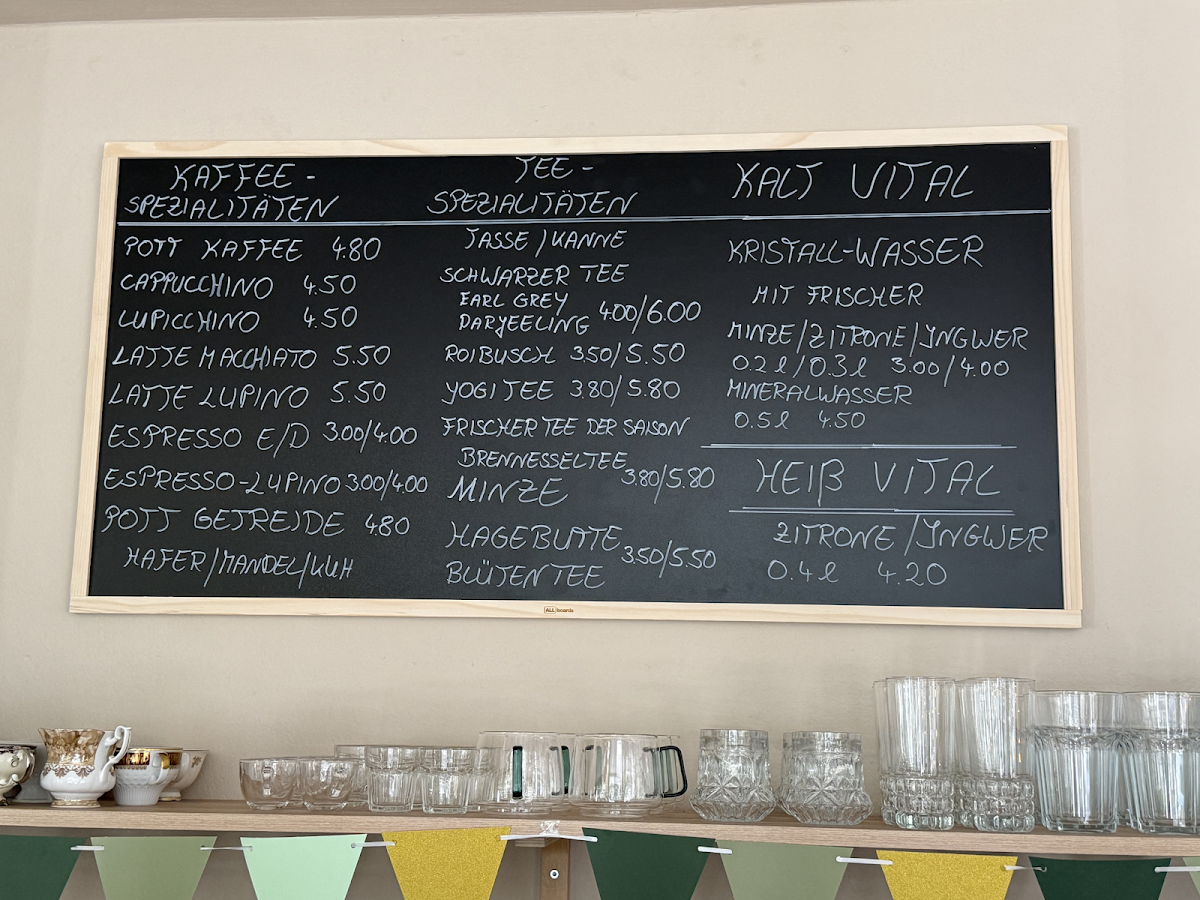 KAFFEE-
SPEZIALITÄTEN
POTT KAFFEE 4.80
CAPPUCCHINO 4.50
LUPICCHINO 4.50
LATTE MACCHIATO 5.50
LATTE LUPINO 5.50
ESPRESSO E/D 3.00/4.00
ESPRESSO-LUPINO 3.00/4.00
POTT GETREIDE 4.80
HAFER/MANDEL/KUH
TEE-
SPEZIALITÄTEN
TASSE/KANNE
SCHWARZER TEE
EARL GREY
DARYEELING 4.00/6.00
ROIBUSCH 3.50/5.50
YOGI TEE 3.80/5.80
FRISCHER TEE DER SAISON
BRENNESSELTEE
MINZE 3.80/5.80
HAGEBUTTE
BLÜTENTEE 3.50/5.50
KALT VITAL
KRISTALL-WASSER
MIT FRISCHER
MINZE/ZITRONE/INGWER
0.2l/0.3l 3.00/4.00
MINERALWASSER
0.5l 4.50
HEIß VITAL
ZITRONE/INGWER
0.4l 4.20
ALL boards